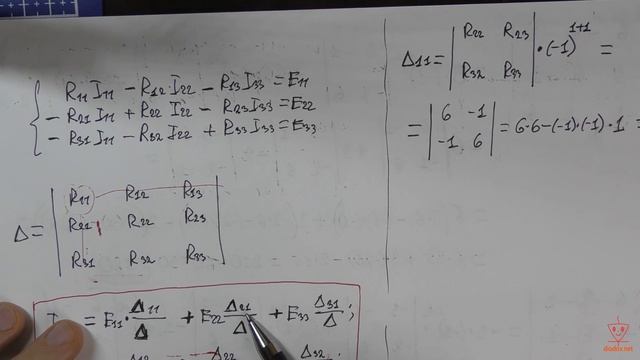 R11 I11 - R12 I22 - R13 I33 = E11
- R21 I11 + R22 I22 - R23 I33 = E22
- R31 I11 - R32 I22 + R33 I33 = E33
Δ =
R11 R12 R13
R21 R22 R23
R31 R32 R33
I = E11 · Δ11/Δ + E22 Δ21/Δ + E33 Δ31/Δ ;
Δ12 Δ22 Δ32
Δ11 = | R22 R23 | · (-1)^1+1 =
R32 R33
= | 6 -1 | = 6·6-(-1)·(-1)·1 =
-1 6
diodov.net